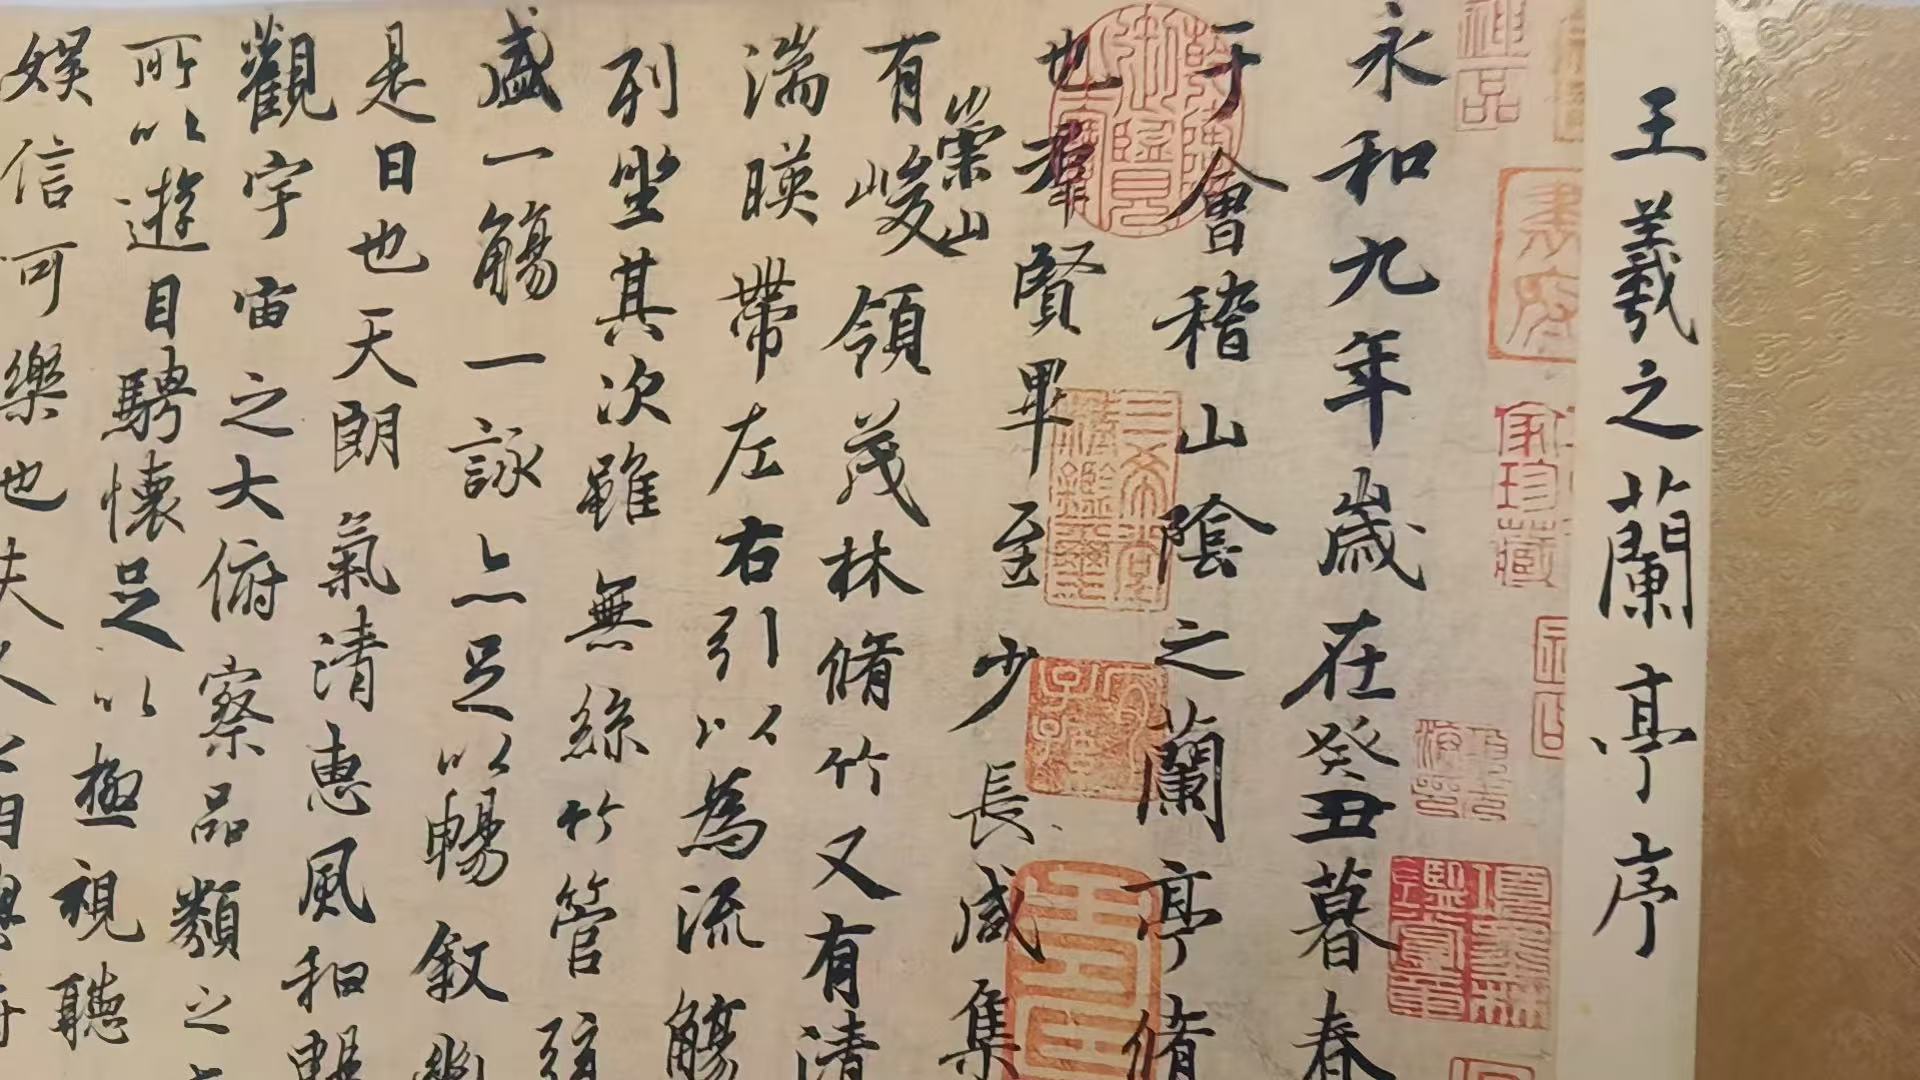 王羲之蘭亭序
神品
項墨林鑑賞章
永和九年歲在癸丑暮春
于會稽山陰之蘭亭脩
三希堂精鑑璽
宜子孫
也羣賢畢至少長咸集
崇山
有峻領茂林脩竹又有清
湍暎帶左右引以為流觴
列坐其次雖無絲竹管弦
盛一觴一詠亦足以暢叙幽
是日也天朗氣清惠風和暢
觀宇宙之大俯察品類之
所以遊目騁懷足以極視聽
娛信可樂也夫人之相與